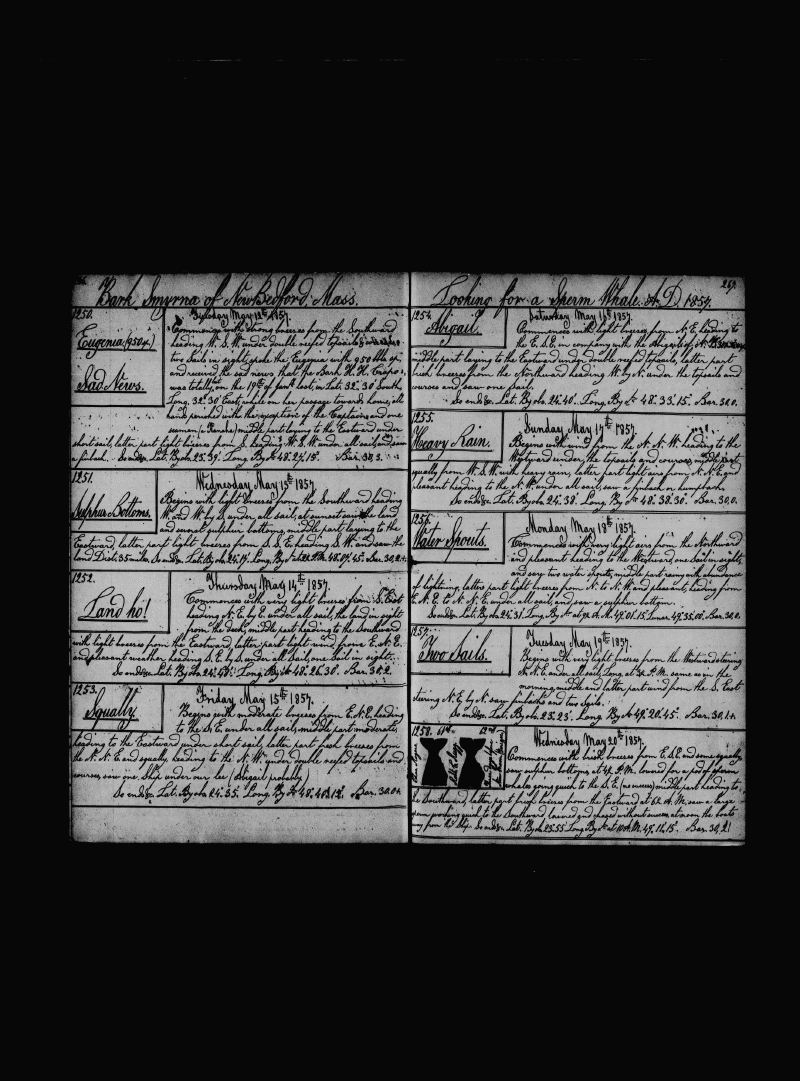 Bark Smyrna of New Bedford. Mass.
1250.
Eugenia (950 4.)
Sad News.
Tuesday May 12th 1857.
Commences with strong breezes from the Southward
heading W. S. W. under double reefed topsails
two Sails in sight, spoke the Eugenia with 950 bbls
and received the sad news that the Bark H. H.
was totally on the 19th of lost, in Lat. 32°. 30' South
Long. 32°. 30' East, while on her passage towards home, all
hands perished with the exception of the Captain and one
seaman middle part laying to the Eastward under
short sail, latter part light breezes from S. heading W. S. W. under all sail, and saw
a finback. So ends Lat. By obs 25. 39'. Long. By 48. 27. 15" Bar. 30. 3.
1251.
Sulphur Bottoms.
Wednesday May 13th 1857.
Begins with light breezes from the Southward heading
W. and W. by S. under all sail, at sunset saw the land
and several sulphur bottoms, middle part laying to the
Eastward, latter part light breezes from S. S. E. heading S. W. and saw the
land Dist. 35 miles. So ends Lat. By obs 24. 17'. Long. By 48°. 07'. 45" Bar. 30.2+
1252.
Land ho!
Thursday May 14th 1857.
Commences with very light breezes from S. East
heading N. E. by E. under all sail, the land in sight
from the deck, middle part heading to the Southward
with light breezes from the Eastward, latter part light wind from E. N. E.
and pleasant weather heading S. E. by S. under all Sail, one Sail in sight.
So ends Lat. By obs 24. 48' Long By 48°. 26'. 30" Bar. 30.2.
1253.
Squally.
Friday May 15th 1857.
Begins with moderate breezes from E. N. E. heading
to the S. E. under all sail, middle part moderate,
heading to the Eastward under short sail, latter part fresh breezes from
the N. N. E. and squally, heading to the N. W. under double reefed topsails and
courses, saw one Ship under our lee (Abigail probably)
So ends Lat. By obs 24°. 35'. Long. By 48°. Bar. 30.0+
Looking for a Sperm Whale. A. D. 1857.
269.
1254.
Abigail.
Saturday May 16th 1857.
Commences with light breezes from N. E. heading to
the E. S. E. in company with the Abigail of N.
middle part laying to the Eastward under double reefed topsails, latter part
brisk breezes from the Northward heading W. by N. under the topsails and
courses and saw one Sail.
So ends Lat. By obs. 24°. 40'. Long. By 48°. 33'. 15" Bar. 30.0.
1255.
Heavy Rain.
Sunday May 17th 1857.
Begins with wind from the N. N. W. heading to the
Westward under the topsails and courses, middle part
squally from W. S. W. with heavy rain, latter part light airs from N. N. E. and
pleasant heading to the N. W. under all sail, saw a finback or humpback.
So ends Lat. By obs 24°. 38'. Long. By 48°. 38'. 30" Bar. 30,0.
1256.
Water Spouts.
Monday May 18th 1857.
Commences with very light airs from the Northward
and pleasant heading to the Westward, one Sail in sight,
and saw two water Spouts, middle part rainy with abundance
of lightning, latter part light breezes from N. to N. W. and pleasant, heading from
E. N. E. to N. N. E. under all sail, and saw a sulphur bottom.
So ends Lat. By obs 24°. 31'. Long By A. M. 49°. 01'. 15". Lunar 49°. 35'. 00" Bar. 30,0.
1257.
Two Sails.
Tuesday May 19th 1857.
Begins with very light breezes from the Westward steering
N. N. E. under all sail, Long. at P. M. same as in the
morning, middle and latter part wind from the S. East
steering N. E. by N. saw finbacks and two Sails.
So ends Lat. By obs 23°. 23'. Long By 49°. 20'. 45". Bar. 30.1+.
1258.
61st
62nd
Wednesday May 20th 1857.
Commences with brisk breezes from E. S. E. and some squally,
saw sulphur bottoms, at P. M. lowered for a pod of sperm
whales going quick to the S. E. (no success) middle part heading to
the Southward, latter part fresh breezes from the Eastward at A. M. saw a large
sperm working quick to the Southward, lowered and chased without success, at noon the boats
away from the Ship. So ends Lat. By obs 23°. 55' Long By 49°. 11'. 15" Bar. 30,2!